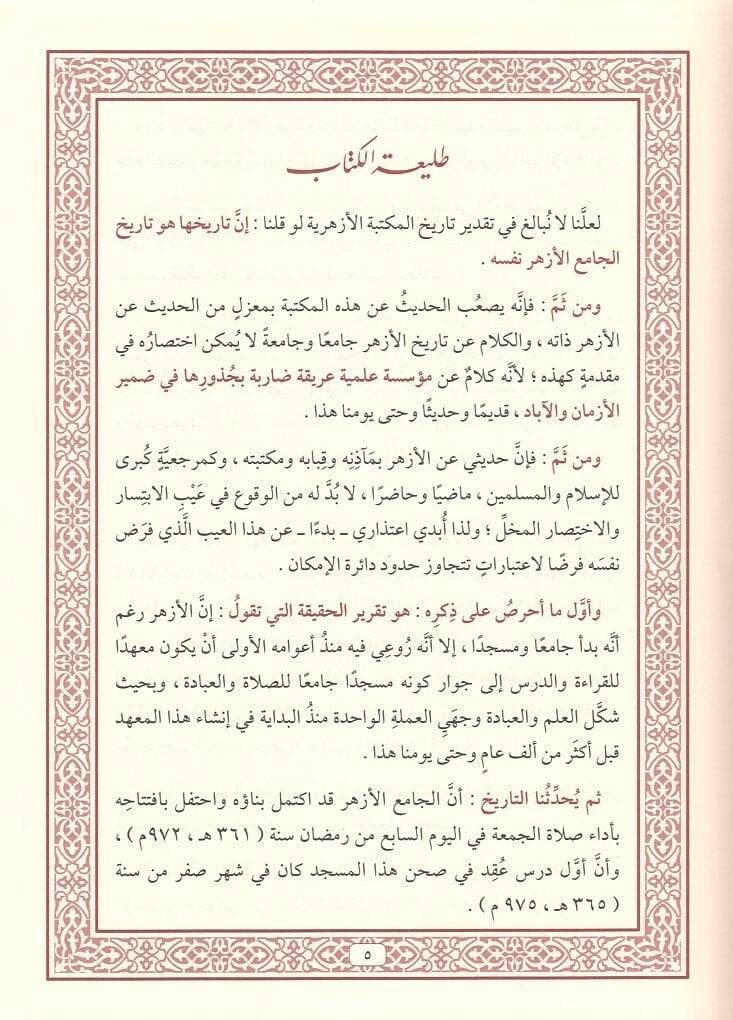 طليعة الكتاب
لعلَّنا لا نُبالغ في تقدير تاريخ المكتبة الأزهرية لو قلنا : إنَّ تاريخها هو تاريخ
الجامع الأزهر نفسه .
ومن ثَمَّ : فإنَّه يصعُب الحديثُ عن هذه المكتبة بمعزلٍ من الحديث عن
الأزهر ذاته ، والكلام عن تاريخ الأزهر جامعًا وجامعةً لا يُمكن اختصارُه في
مقدمةٍ كهذه ؛ لأنَّه كلامٌ عن مؤسسة علمية عريقة ضاربة بجُذورِها في ضمير
الأزمان والآباد ، قديمًا وحديثًا وحتى يومنا هذا .
ومن ثَمَّ : فإنَّ حديثي عن الأزهر بمَآذِنِه وقِبابه ومكتبته ، وكمرجعيَّةٍ كُبرى
للإسلام والمسلمين ، ماضيًا وحاضرًا ، لا بُدَّ له من الوقوع في عَيْبِ الابتِسار
والاختِصار المخلِّ ؛ ولذا أُبدي اعتذاري ــ بدءًا ــ عن هذا العيب الَّذي فرَض
نفسَه فرضًا لاعتباراتٍ تتجاوز حدود دائرة الإمكان .
وأوَّل ما أحرصُ على ذِكرِه : هو تقرير الحقيقة التي تقولُ : إنَّ الأزهر رغم
أنَّه بدأ جامعًا ومسجدًا ، إلا أنَّه رُوعِي فيه منذُ أعوامه الأولى أنْ يكون معهدًا
للقراءة والدرس إلى جوار كونه مسجدًا جامعًا للصلاة والعبادة ، وبحيث
شكَّل العلم والعبادة وجهَيِ العملةِ الواحدة منذُ البداية في إنشاء هذا المعهد
قبل أكثَر من ألف عامٍ وحتى يومنا هذا .
ثم يُحدِّثُنا التاريخ : أنَّ الجامع الأزهر قد اكتمل بناؤه واحتفل بافتتاحِه
بأداء صلاة الجمعة في اليوم السابع من رمضان سنة ( ٣٦١ هـ ، ٩٧٢م ) ،
وأنَّ أوَّل درس عُقِد في صحن هذا المسجد كان في شهر صفر من سنة
( ٣٦٥ هـ ، ٩٧٥ م ) .
٥